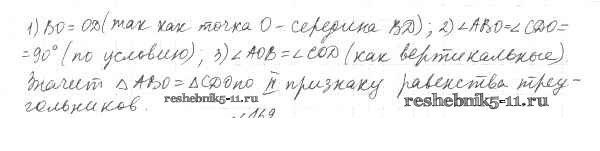 1) BO = OD (так как точка O – середина BD); 2) ∠ABO = ∠CDO =
= 90° (по условию); 3) ∠AOB = ∠COD (как вертикальные).
Значит △ABO = △CDO по II признаку равенства треу-
гольников.
reshebnik5-11.ru
reshebnik5-11.ru